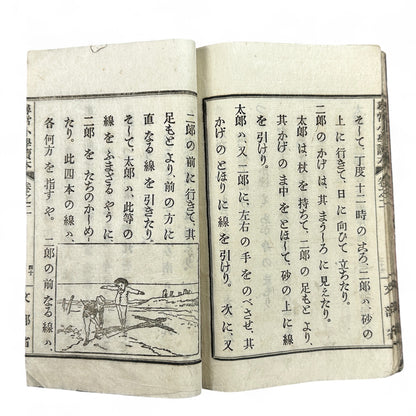 そして、丁度十二時のころ、二郎ハ、砂の
上に行きて、日に向ひて立ちたり。
二郎のかげハ、其まうしろに見えたり。
太郎は杖を持ちて、二郎の足もとより、
其かげのま中をとほして、砂の上に線
を引けり。
太郎ハ、又二郎に、左右の手をのべさせ、其
かげのとほりに線を引けり。次に、又
二郎の前に行きて、其
足もとより、前の方に
直なる線を引きたり。
そして、太郎ハ、此等の
線をふまざるやうに
二郎をたちのかしめ
たり。此四本の線ハ、
各何方を指すや。二郎の前なる線ハ、
尋常小學讀本
卷之二
文部省